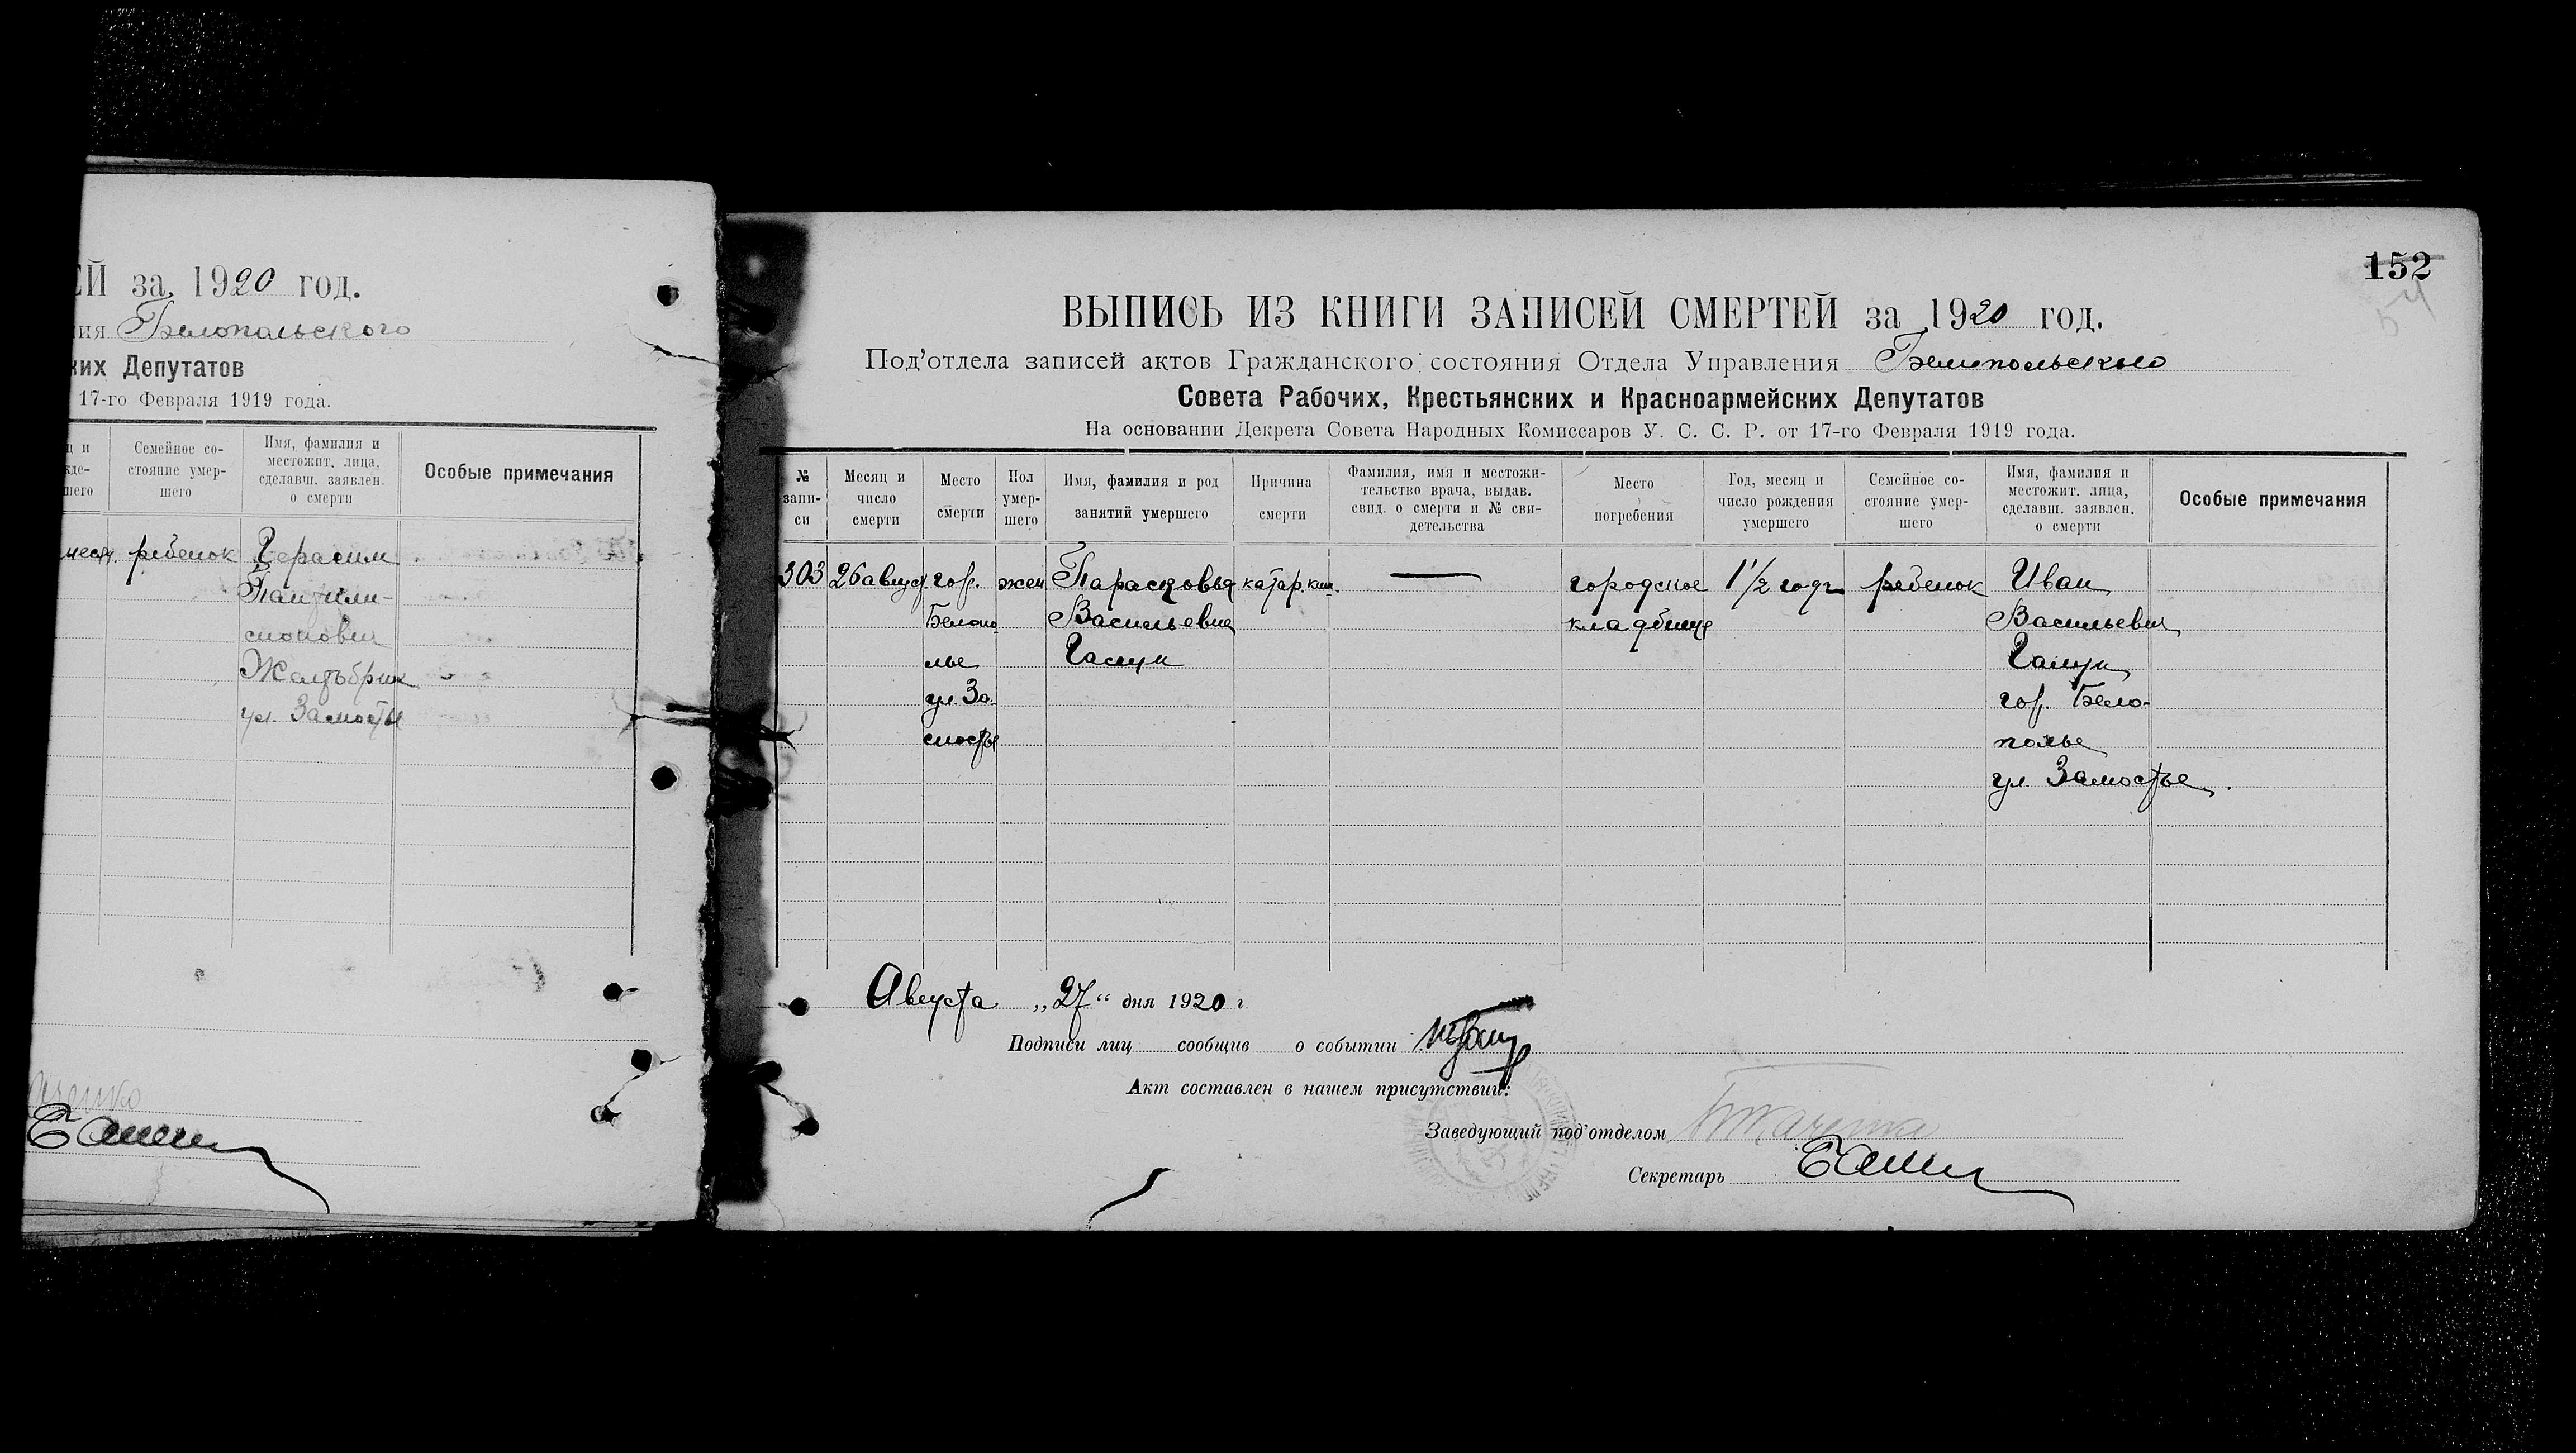 ЕЙ за 1920 год.
ия Белопольского
ких Депутатов
17-го Февраля 1919 года.
ц и
жде-
шего
Семейное со-
стояние умер-
шего
Имя, фамилия и
местожит. лица,
сделавш. заявлен.
о смерти
Особые примечания
месяц. ребенок Герасим
Пантели-
Жалъбрик
ул. Замостье
152
54
ВЫПИСЬ ИЗ КНИГИ ЗАПИСЕЙ СМЕРТЕЙ за 1920 год.
Под'отдела записей актов Гражданского состояния Отдела Управления Белопольского
Совета Рабочих, Крестьянских и Красноармейских Депутатов
На основании Декрета Совета Народных Комиссаров У. С. С. Р. от 17-го Февраля 1919 года.
№
запи-
си
Месяц и
число
смерти
Место
смерти
Пол
умер-
шего
Имя, фамилия и род
занятий умершего
Причина
смерти
Фамилия, имя и местожи-
тельство врача, выдав.
свид. о смерти и № сви-
детельства
Место
погребения
Год, месяц и
число рождения
умершего
Семейное со-
стояние умер-
шего
Имя, фамилия и
местожит. лица,
сделавш. заявлен.
о смерти
Особые примечания
303
26 август.
гор.
Белопо
лье
ул. За-
мостье
жен.
Парасковья
Васильевна
катар. киш.
—
городское
кладбище
1½ года
ребенок
Иван
Васильевич
гор. Бело-
полье
ул. Замостье.
Августа „27“ дня 1920 г.
Подписи лиц сообщив о событии
Акт составлен в нашем присутствии:
Заведующий под'отделом Ткаченко
Секретарь